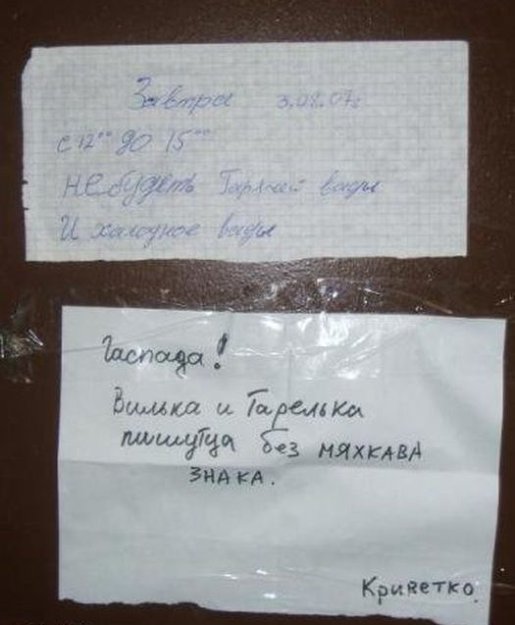 Завтра 3.08.07г
с 12°° до 15°°
не будеть Гарячей вады
И халодное вады
Гаспада!
Вилька и Тарелька
пишутца без мяхкава
знака.
Криветко.